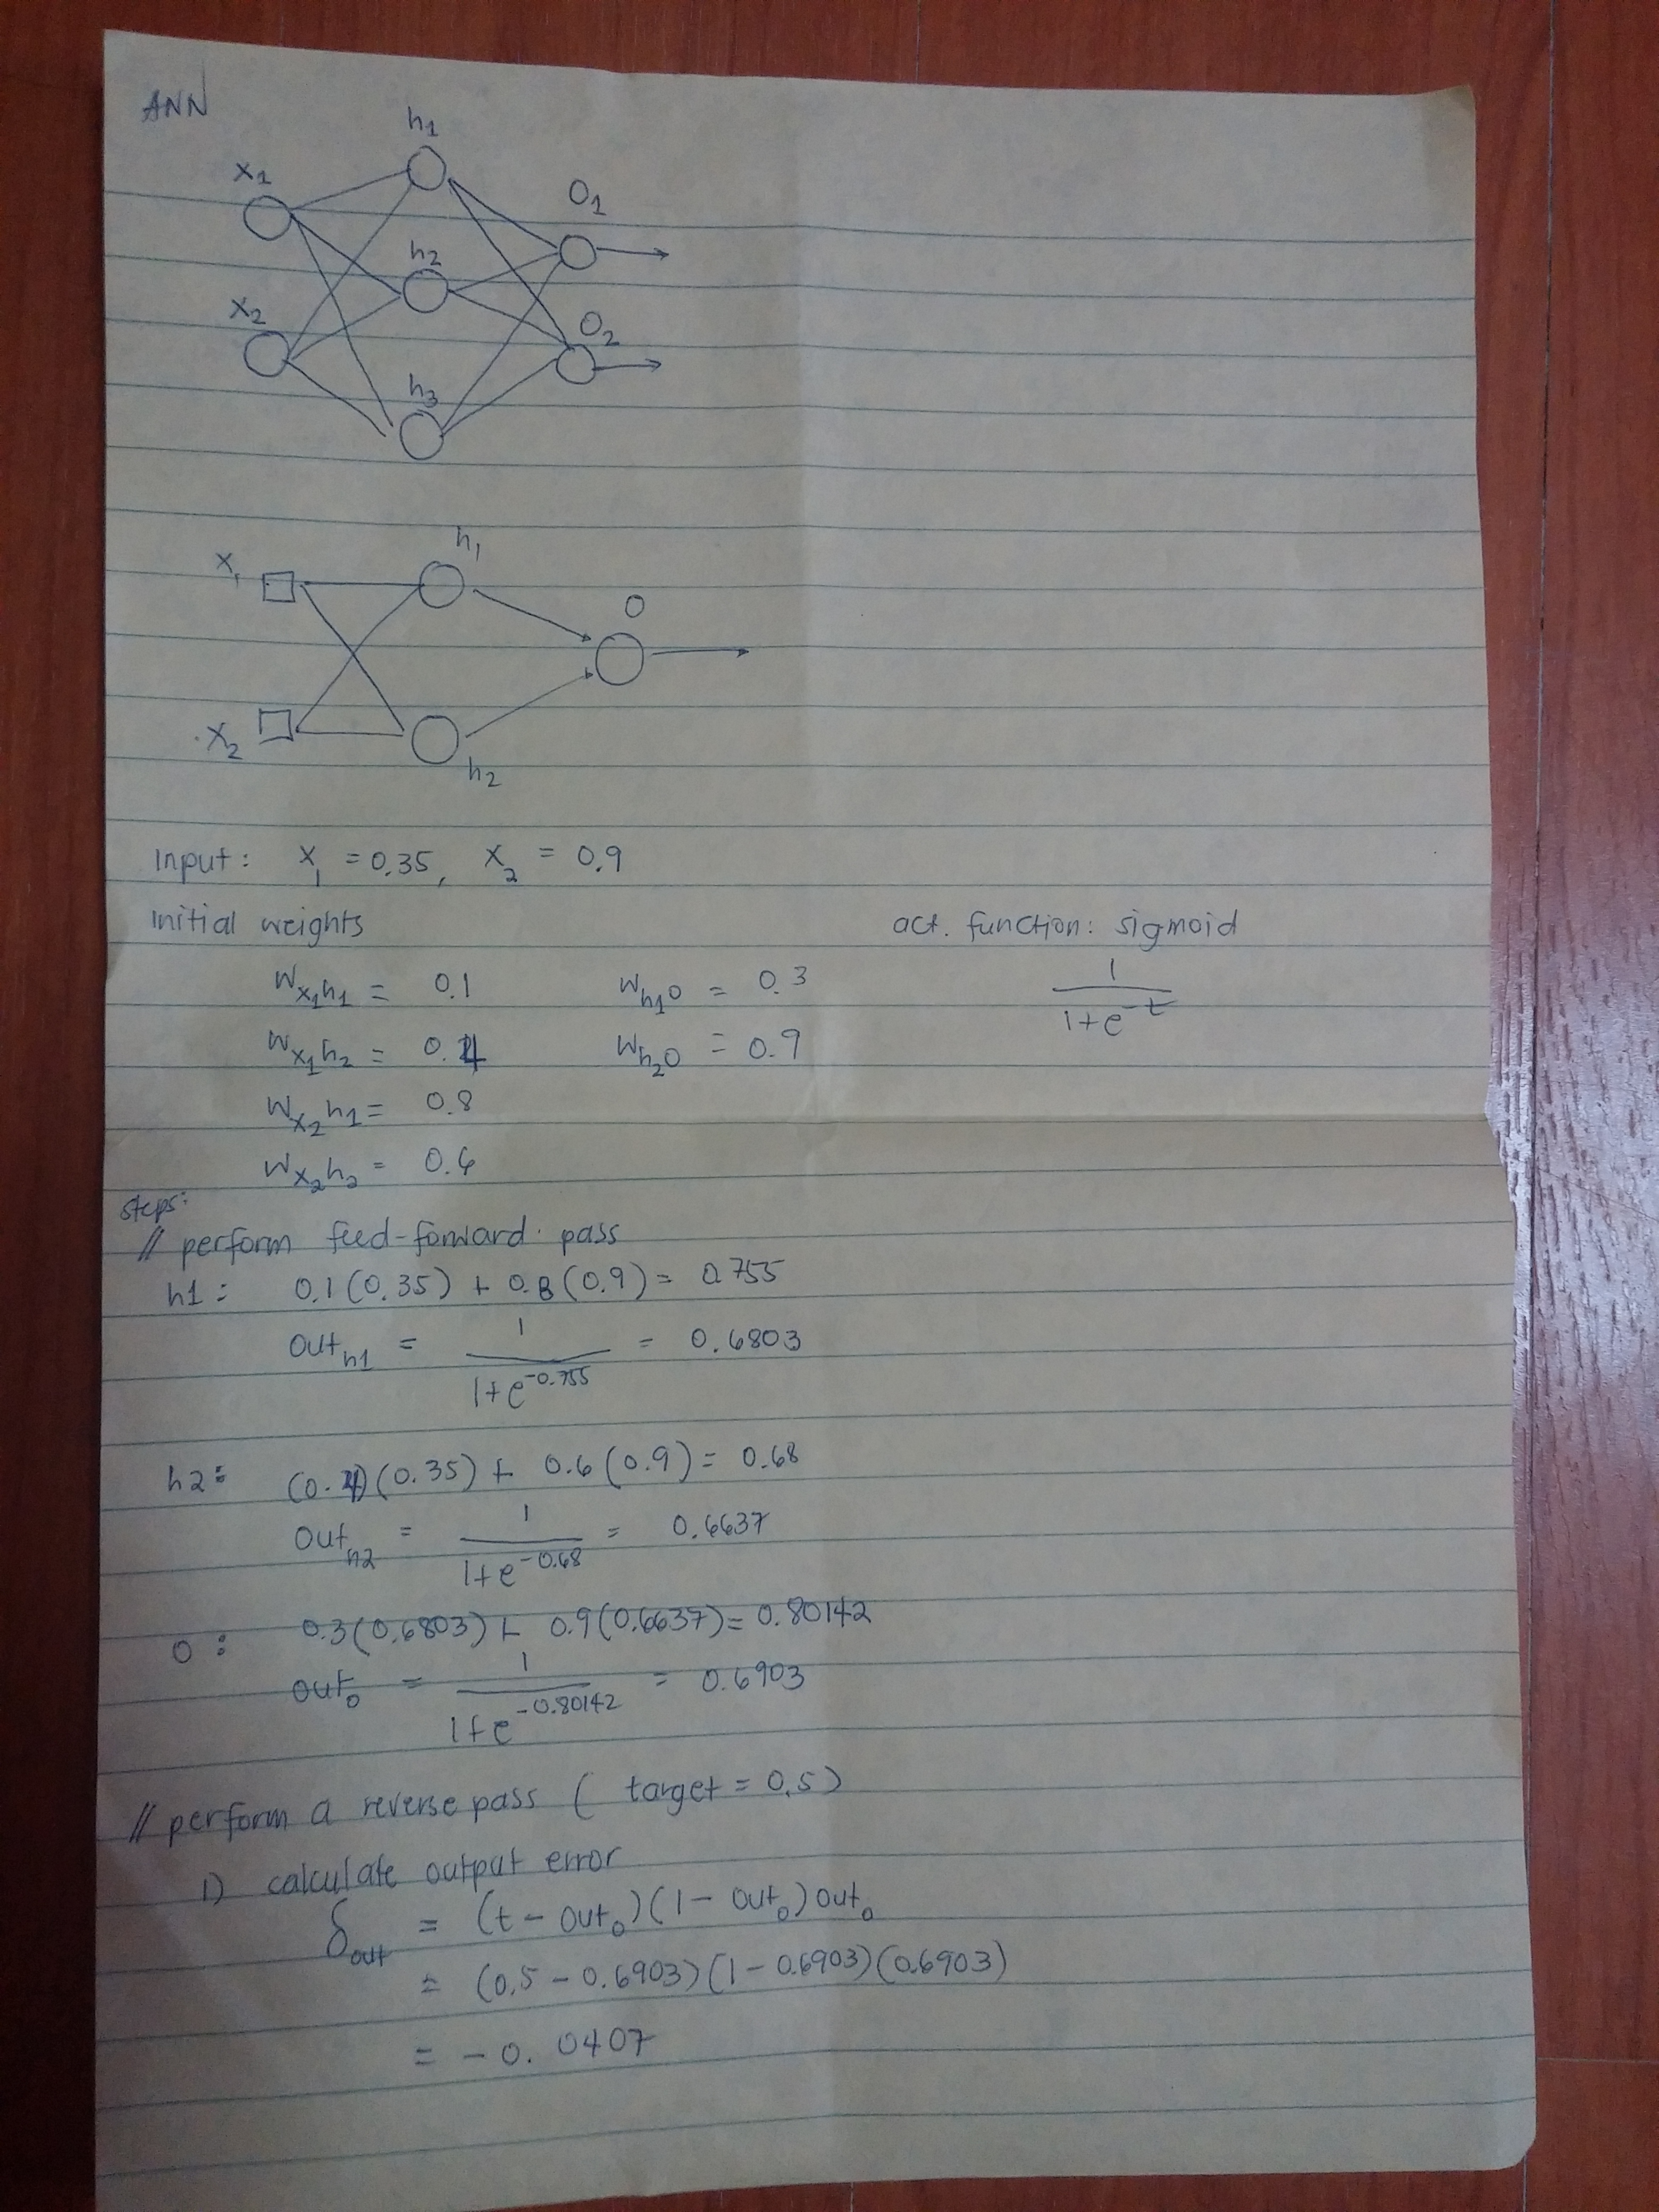 ANN
h₁
x₁
O₁
h₂
x₂
O₂
h₃
h₁
x₁
O
x₂
h₂
Input: x₁ = 0.35, x₂ = 0.9
Initial weights
act. function: sigmoid
W_x₁h₁ = 0.1
W_h₁o = 0.3
1/(1+e^-t)
W_x₁h₂ = 0.4
W_h₂o = 0.9
W_x₂h₁ = 0.8
W_x₂h₂ = 0.6
steps:
// perform feed-forward pass
h1: 0.1(0.35) + 0.8(0.9) = 0.755
out_h1 = 1/(1+e^-0.755) = 0.6803
h2: (0.4)(0.35) + 0.6(0.9) = 0.68
out_h2 = 1/(1+e^-0.68) = 0.6637
O: 0.3(0.6803) + 0.9(0.6637) = 0.80142
out_o = 1/(1+e^-0.80142) = 0.6903
// perform a reverse pass (target = 0.5)
1) calculate output error
δ_out = (t - out_o)(1 - out_o) out_o
= (0.5 - 0.6903)(1 - 0.6903)(0.6903)
= -0.0407